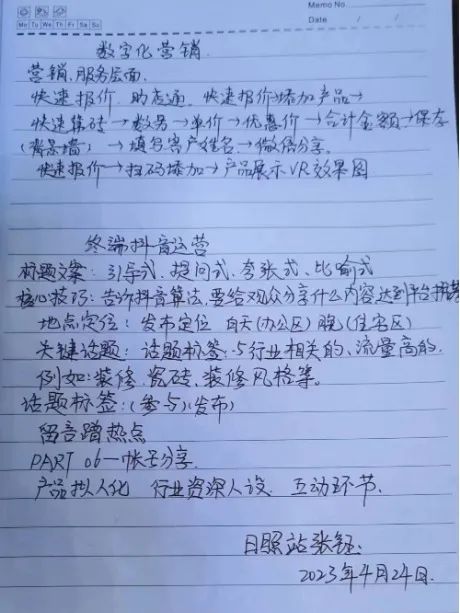 Memo No.
Mo Tu We Th Fr Sa Su
Date / /
数字化营销.
营销、服务层面.
快速报价. 助店通. 快速报价→添加产品→
快速集砖→数量→单价→优惠价→合计金额→保存
(背景墙) →填写客户姓名→微信分享.
快速报价→扫码添加→产品展示VR效果图
终端抖音运营
标题文案: 引导式. 提问式. 夸张式. 比喻式
核心技巧: 告诉抖音算法,要给观众分享什么内容达到平台推荐
地点定位: 发布定位 白天(办公区) 晚(住宅区)
关键话题: 话题标签: 与行业相关的、流量高的.
例如: 装修. 瓷砖. 装修风格等.
话题标签: (参与)(发布)
留言蹭热点
PART 06一帐号分享.
产品拟人化 行业资深人设. 互动环节.
日照站张钰.
2023年4月24日.